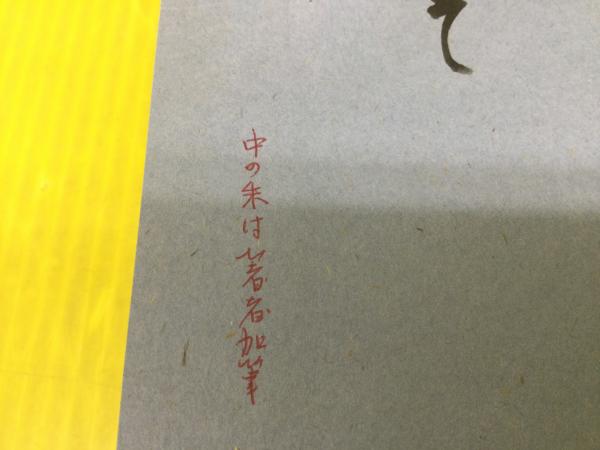 て
中の朱は著者加筆